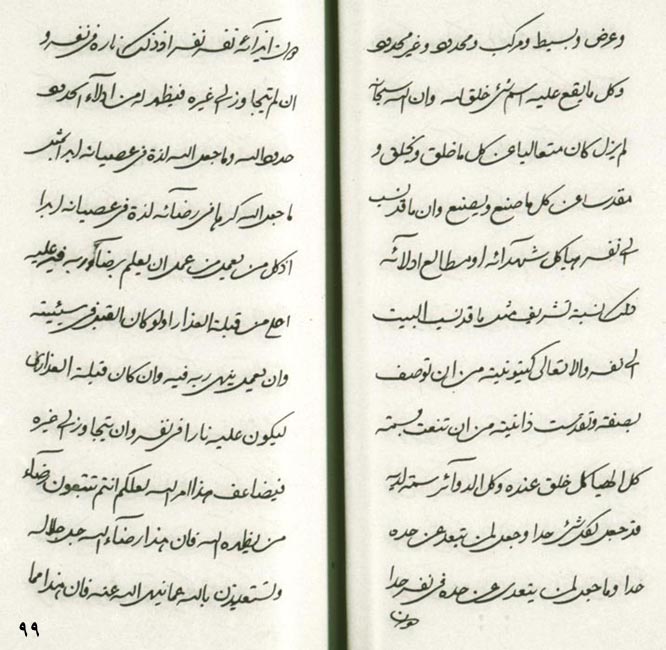 وعرض وبسيط ومركب ومحدود وغير محدود
وكل ما يقع عليه اسم شئ خلق له وان الله سبحانه
لم يزل كان متعاليا عن كل ما خلق ويخلق و
مقدسا عن كل ما صنع ويصنع وان ما قد نسب
الى نفسه هياكل شهدائه او مطالع ادلائه
ذلك نسبة تشريف مثل ما قد نسب البيت
الى نفسه والا تعالى كينونيته من ان توصف
بصفة وتقدست ذاتيته من ان تنعت بسمة
كل الهياكل خلق عنده وكل الدوائر سمة لديه
قد جعل لكل شئ حدا وجعل لمن يتعد عن حده
حدا وما جعل لمن يتعدى عن حده فى نفسه حدا
دون
دون ايذائه نفسه نفسه اذ ذلك ناره فى نفسه و
ان لم يتجاوز الى غيره فيظهر له من ادلاء الحدود
حدود الله وما جعل الله لذة فى عصيانه ابدا بمثل
ما جعل الله كرها فى رضائه لذة فى عصيانه ابدا
اذ كل من يعمل من عمل ان يعلم رضاء ربه فيه عليه
احلى من قبلة العذار اولو كان القبض فى سيئيته
وان يعمل ينهى ربه فيه وان كان قبلة العذارى
ليكون عليه نارا فى نفسه وان يتجاوز الى غيره
فيضاعف هذا امر الله لعلكم انتم تتبعون رضاء
من يظهره الله فان هذا رضاء الله جل جلاله
ولتستعيذن بالله عما نهى الله عنه فان هذا مما
٩٩